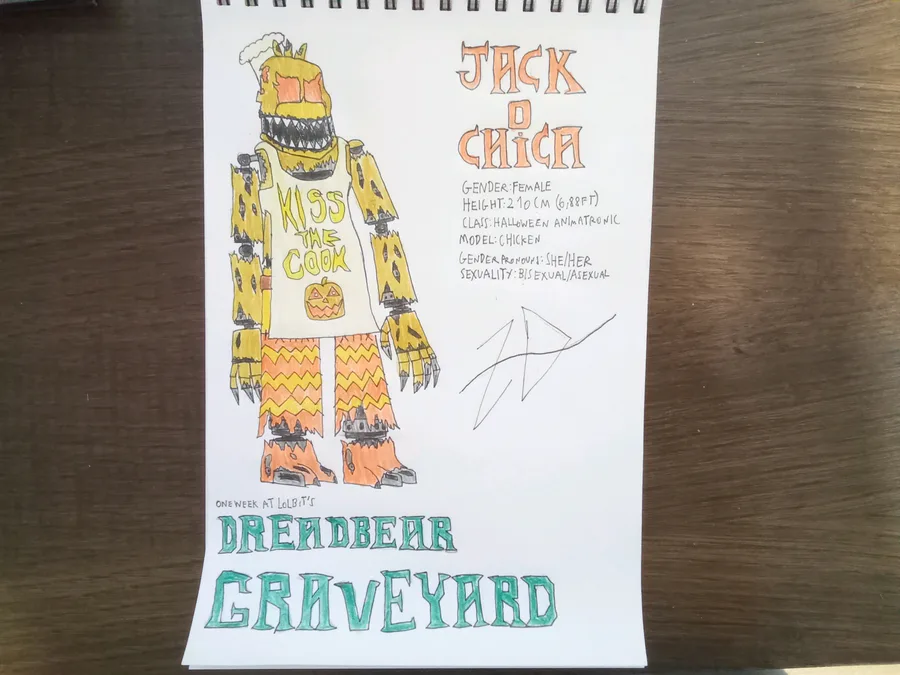 JACK
O
CHiCA
GENDER:FEMALE
HEIGHT:210 CM (6,88FT)
CLASS:HALLOWEEN ANIMATRONIC
MODEL:CHICKEN
GENDER PRONOUNS:SHE/HER
SEXUALITY:BISEXUAL/ASEXUAL
KISS
THE
COOK
ONE WEEK AT LOLBiT'S
DREADBEAR
GRAVEYARD